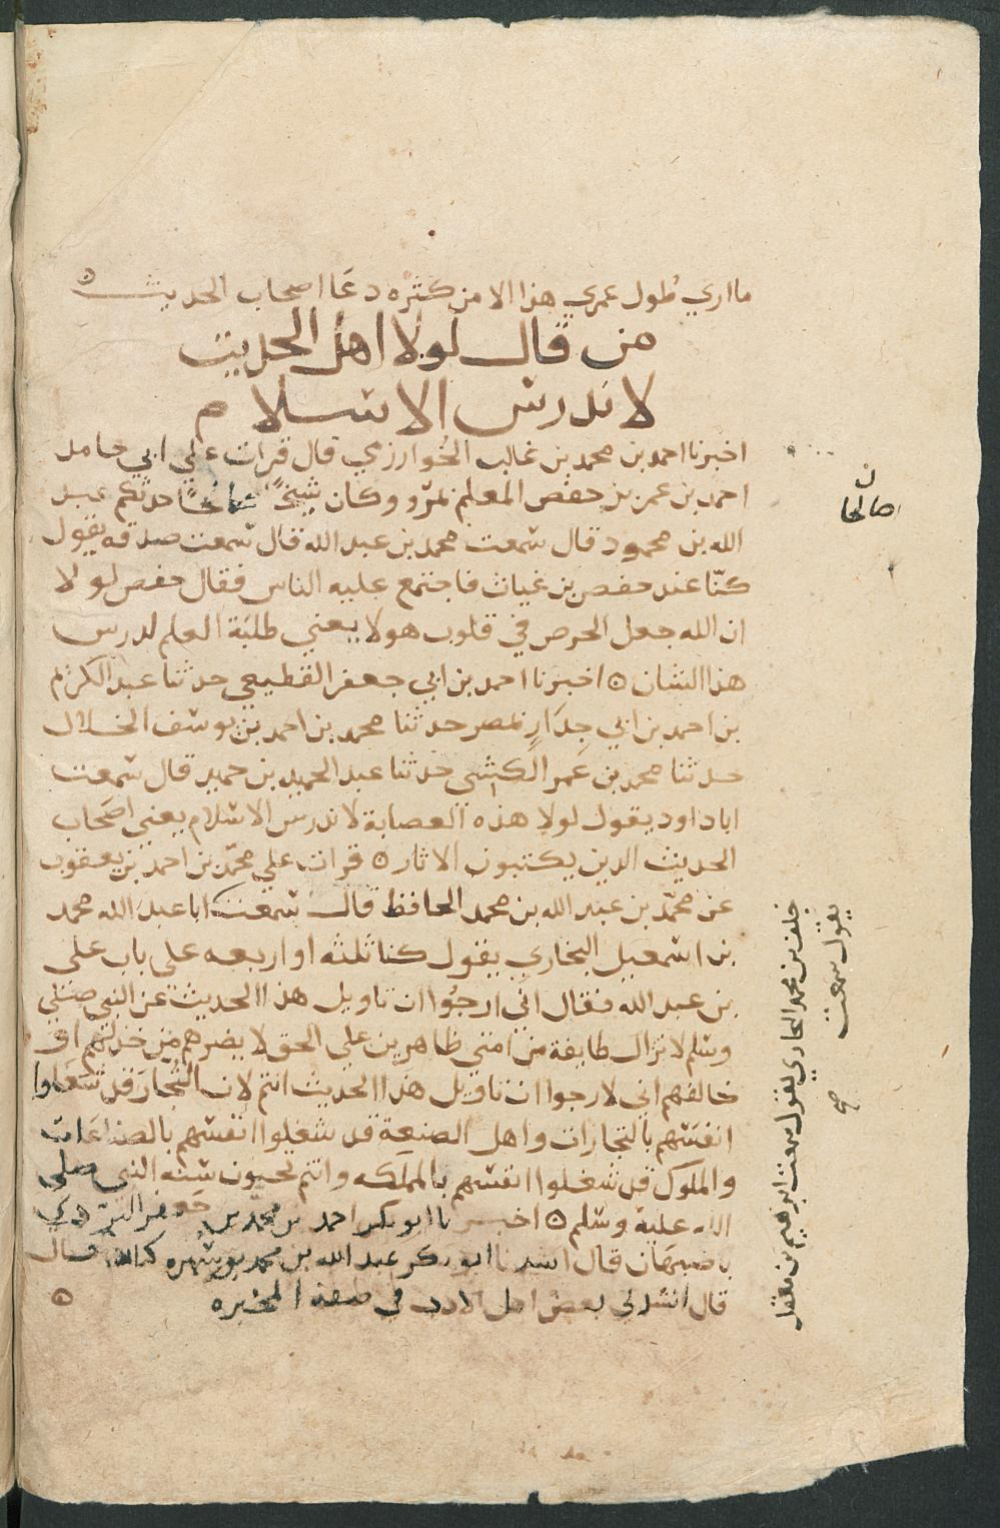 ما اري طُول عمري هذا الا من كثره دعَا اصحاب الحديث ه
من قال لولا اهل الحديث
لاندرس الاسلام
اخبرنا احمد بن محمد بن غالب الخُوارزمي قال قرات علي ابي حامد
احمد بن عمر بن حفص المعلم بمرو وكان شيخًا صالحًا حدثكم عبد
الله بن محمود قال سمعت محمد بن عبد الله قال سمعت صدقه يقول
كنّا عند حفص بن غياث فاجتمع عليه الناس فقال حفص لولا
ان الله جعل الحرص في قلوب هولا يعني طلبَة العلم لدرس
هذا الشان ه اخبرنا احمد بن ابي جعفر القطيعي حدثنا عبد الكريم
بن احمد بن ابي جِدَارٍ بمصر حدثنا محمد بن احمد بن يوسف الخلال
حدثنا محمد بن عمر الكشي حدثنا عبد الحميد بن حميد قال سمعت
ابا داود يقول لولا هذه العصابة لاندرس الاسلام يعني اصحَاب
الحديث الدين يكتبون الاثار ه قرات علي محمّد بن احمد بن يعقوب
عن محمّد بن عبد الله بن محمد الحافظ قال سمعت ابا عبد الله محمد
بن اسمعيل البخاري يقول كنا ثلثه او اربعه على باب على
بن عبد الله فقال اني ارجُوا ان تاويل هذا الحديث عن النبي صلى
وسلم لا تزال طايفة من امتي ظاهرين علي الحق لا يضرهم من خذلهم او
خالفهم اني لارجوا ان تاويل هذا الحديث انتم لان التُّجارَ قد شغلوا
انفسَهم بالتجارات واهل الصنعة قد شغلوا انفسهم بالصناعَات
والملوك قد شغلوا انفسهم بالمملكه وانتم تحيون سنه النبي صلى
الله علية وسلم ه اخبرنا ابو بكر احمد بن محمد بن جعفر
باصبهَان قال انشدنا ابو بكر عبد الله بن محمد بن
قال انشدني بعض اهل الادب في صفة المحبره ه
صالحا
خلف بن محمد البخاري يقول سمعت ابرهيم بن معقل
يقول سمعت
صح